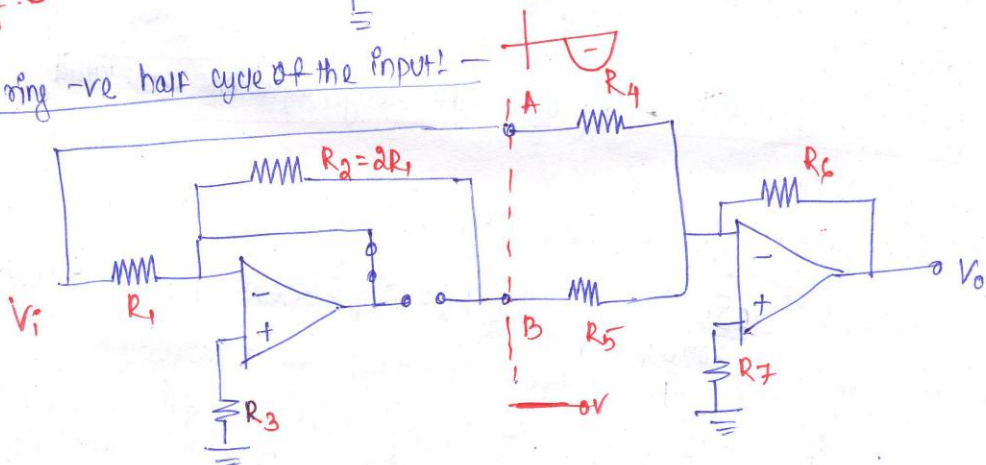 ring -ve half cycle of the input! -
-
A
R4
R2=2R1
R6
Vi
R1
-
+
B
R5
-
+
Vo
R3
R7
0V